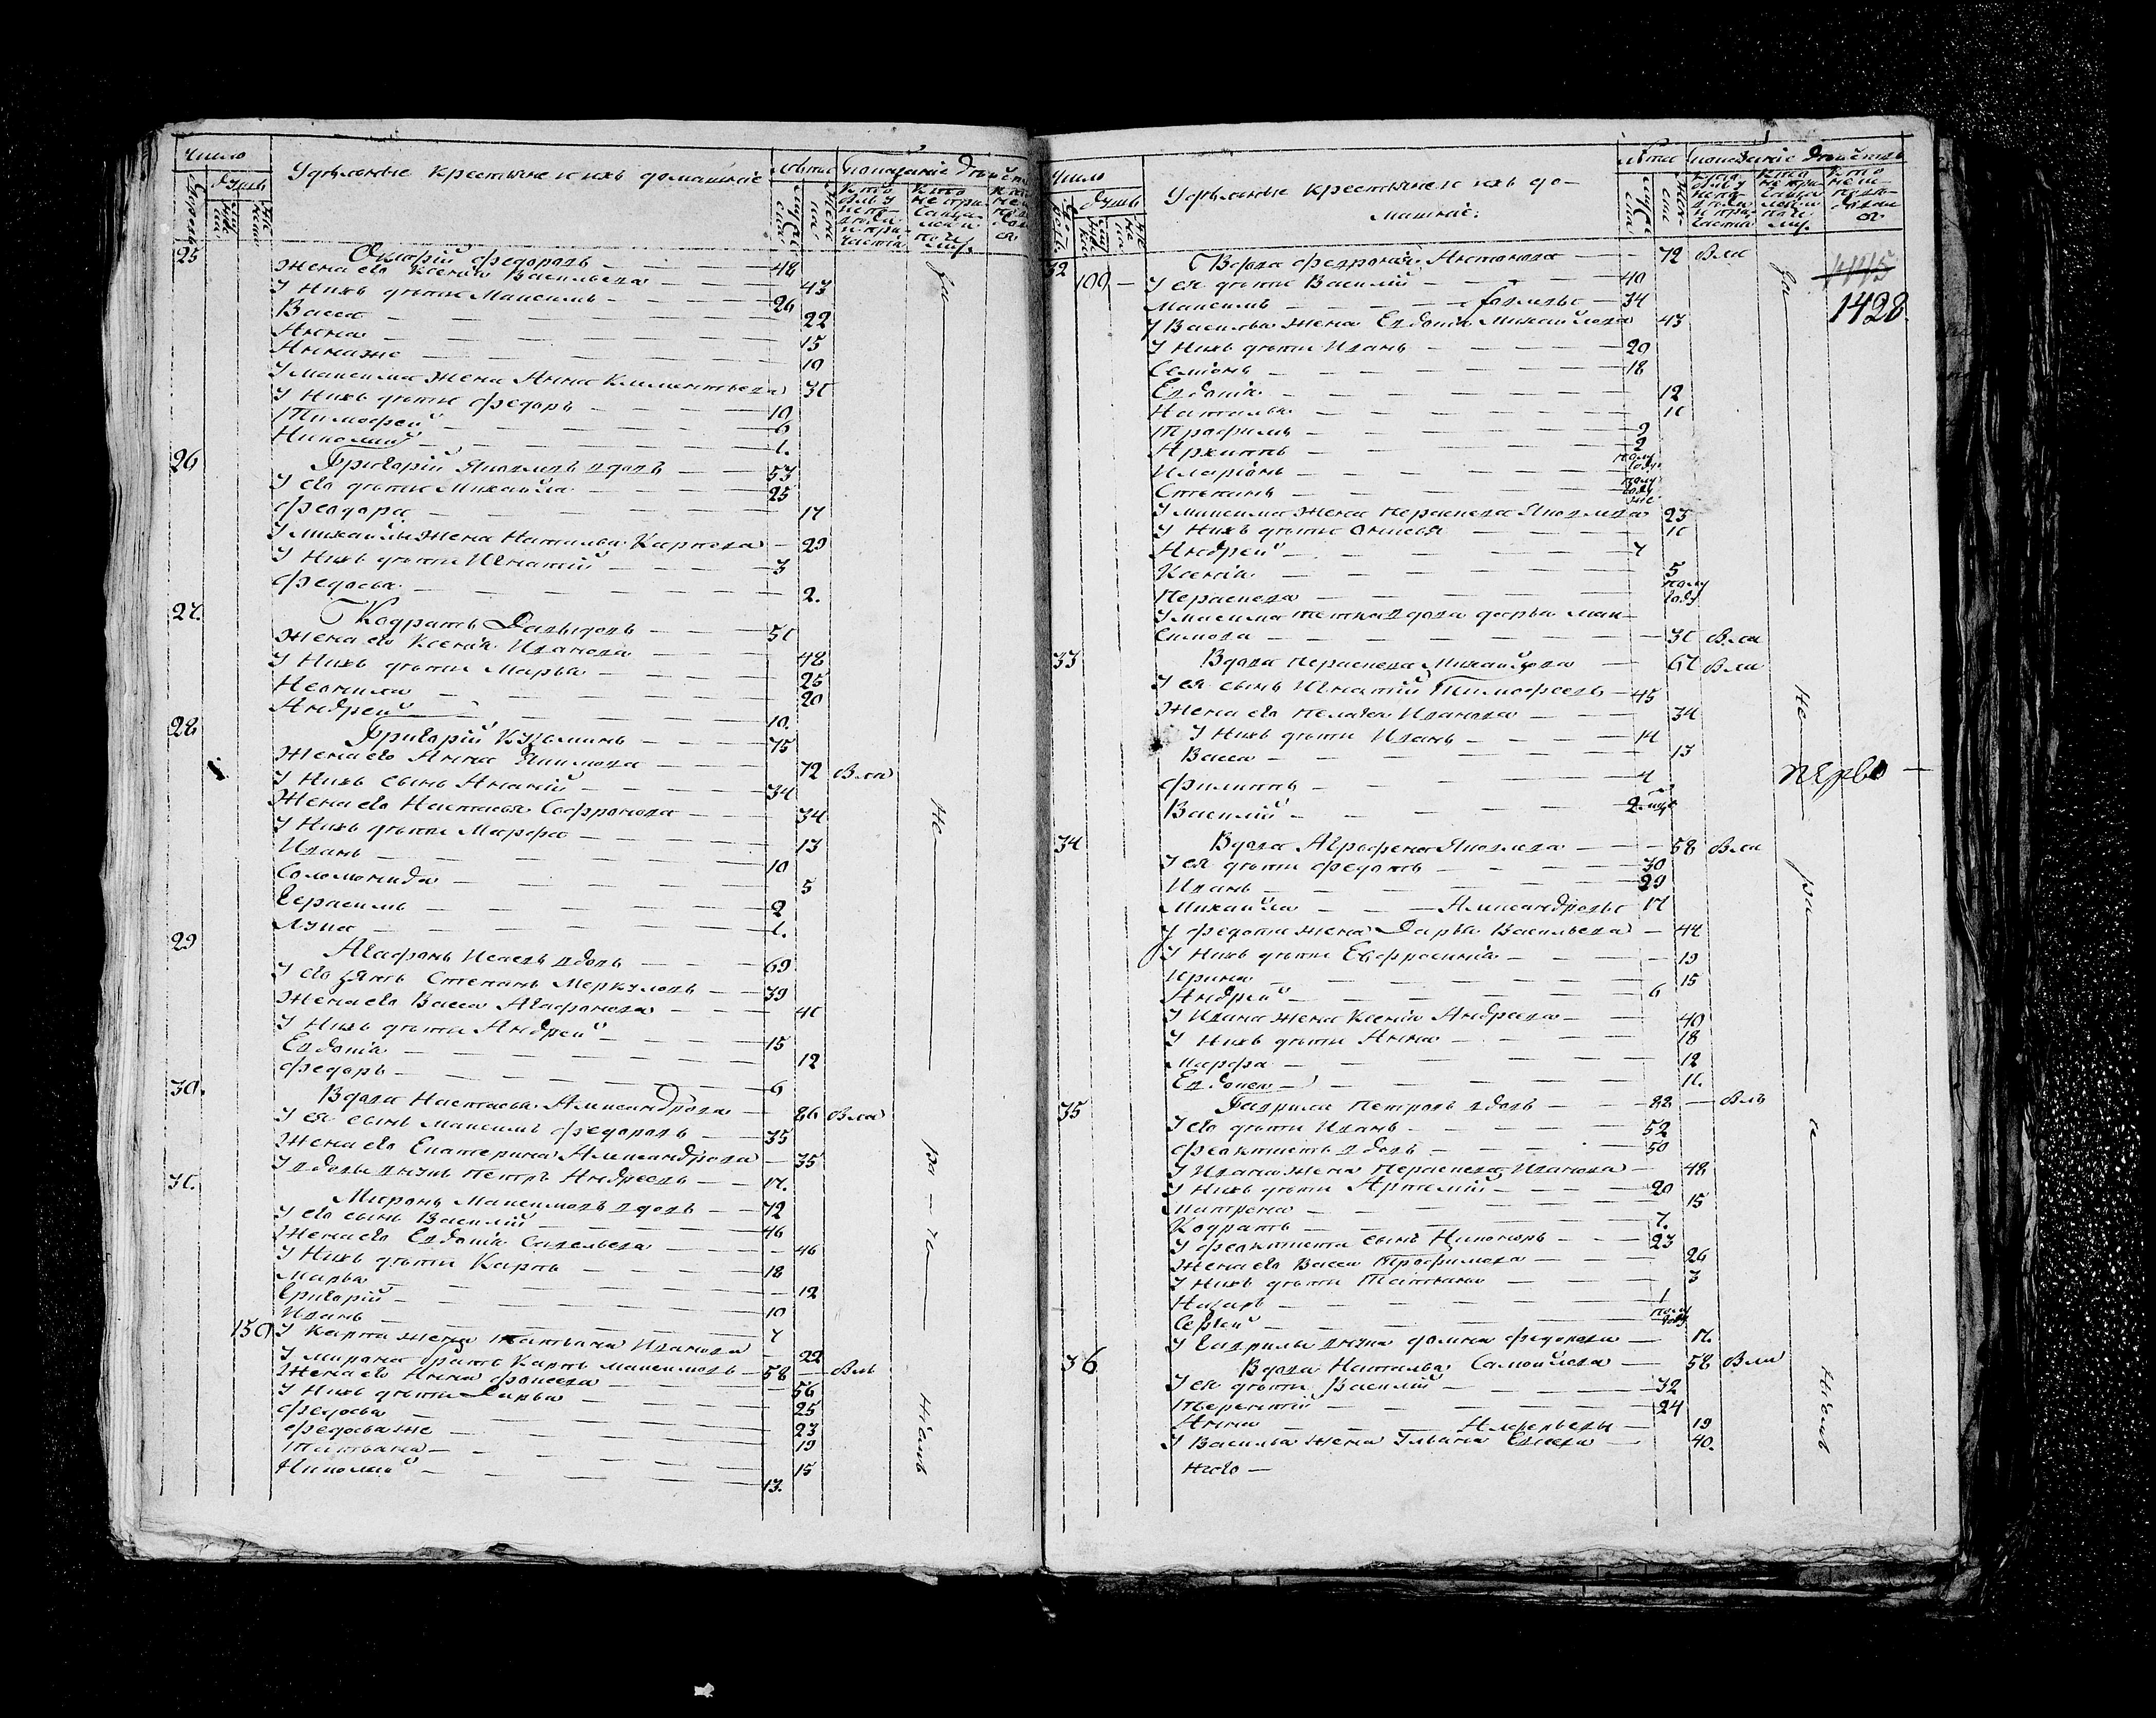 Число
Дворовъ
Душъ
Удѣльные крестьяне и ихъ домашніе
Лѣта
Показаніе дѣйств
25 Федоровъ — 48
Жена его Ксенія Васильева — 43
У нихъ дѣти Максимъ — 26
Васса — 22
Анна — 15
Анна же — 10
У Максима жена Анна Климентьева 31
У нихъ дѣти Федоръ — 10
Тимофей — 6
Николай — 1.
26 Григорій Яковлевъ вдовъ — 53
У его дѣти Михайла — 25
Феодора — 17
У Михайлы жена Наталья Карпова — 29
У нихъ дѣти Игнатій — 3
Федосья — 2.
27. Кодратъ Давыдовъ — 51
Жена его Ксенія Иванова — 48
У нихъ дѣти Марья — 25
Неонила — 20
Андрей — 10.
28 Григорій Кузьминъ — 75
Жена его Анна Якимова — 72
У нихъ сынъ Ананій — 34
Жена его Настасья Сафронова — 34
У нихъ дѣти Марфа — 13
Иванъ — 10
Соломонида — 5
Герасимъ — 2
Лука — 1.
29 Агафонъ Исаевъ вдовъ — 69
У его зять Степанъ Меркуловъ — 39
Жена его Васса Агафонова — 41
У нихъ дѣти Андрей — 15
Евдокія — 12
Федоръ — 6
30. Вдова Настасья Александрова — 86
У ея сынъ Максимъ Федоровъ — 35
Жена его Екатерина Александрова — 35
У вдовы внукъ Петръ Андреевъ — 17.
31. Миронъ Максимовъ вдовъ — 72
У его сынъ Василій — 46
Жена его Евдокія Савельева — 46
У нихъ дѣти Карпъ — 18
Марья — 12
Григорій — 10
Иванъ — 7
150 У Карпа жена Татьяна Иванова — 22
У Мирона братъ Карпъ Максимовъ — 58
Жена его Анна Фокеева — 56
У нихъ дѣти Дарья — 25
Федосья — 23
Федосья же — 19
Татьяна — 15
Николай — 13.
Число
Душъ
Удѣльные крестьяне и ихъ до-
машніе.
Лѣта
Показаніе дѣйств
4445
1428.
32 Вдова Февронія Антонова — 72
100 — У ея дѣти Василій — 40
Максимъ — 34
У Василья жена Евдокія Михайлова 43
У нихъ дѣти Иванъ — 20
Семіонъ — 18
Евдокія — 12
Наталья — 11
Трофимъ — 9
Архиппъ — 2
Иларіонъ — полу году
Степанъ — полу году же
У Максима жена Параскева Яковлева 23
У нихъ дѣти — 11
Андрей — 7
Ксенія — 5
Параскева — полу году
У Максима тетка вдова Дарья Мак-
симова — 31
33 Вдова Параскева Михайлова — 67
У ея сынъ Игнатій Тимофеевъ — 45
Жена его Пелагея Иванова — 34
У нихъ дѣти Иванъ — 14
Васса — 13
Филиппъ — 4
Василій — 2
перво —
34 Вдова Аграфена Яковлева — 58
У ея дѣти Федотъ — 30
Иванъ — 29
Михайла — Александровы 17
У Федота жена Дарья Васильева — 44
У нихъ дѣти Евфросинія — 19
Ирина — 15
Андрей — 6
У Ивана жена Ксенія Андреева — 40
У нихъ дѣти Анна — 18
Марфа — 12
Евдокея — 11.
35 Гаврила Петровъ вдовъ — 88
У его дѣти Иванъ — 52
Феоктистъ вдовъ — 50
У Ивана жена Параскева Иванова — 48
У нихъ дѣти Артемій — 20
Матрена — 15
Кодратъ — 7.
У Феоктиста сынъ Никоноръ — 23
Жена его Васса Трофимова — 26
У нихъ дѣти Татьяна — 3
Назаръ — 1
Сергей — полу году
У Гаврилы внука Домна Федотова — 17.
36 Вдова Наталья Самойлова — 58
У ея дѣти Василій — 32
Терентій — 24
Анна — 19
У Василья жена Ульяна Елисеева — 40.